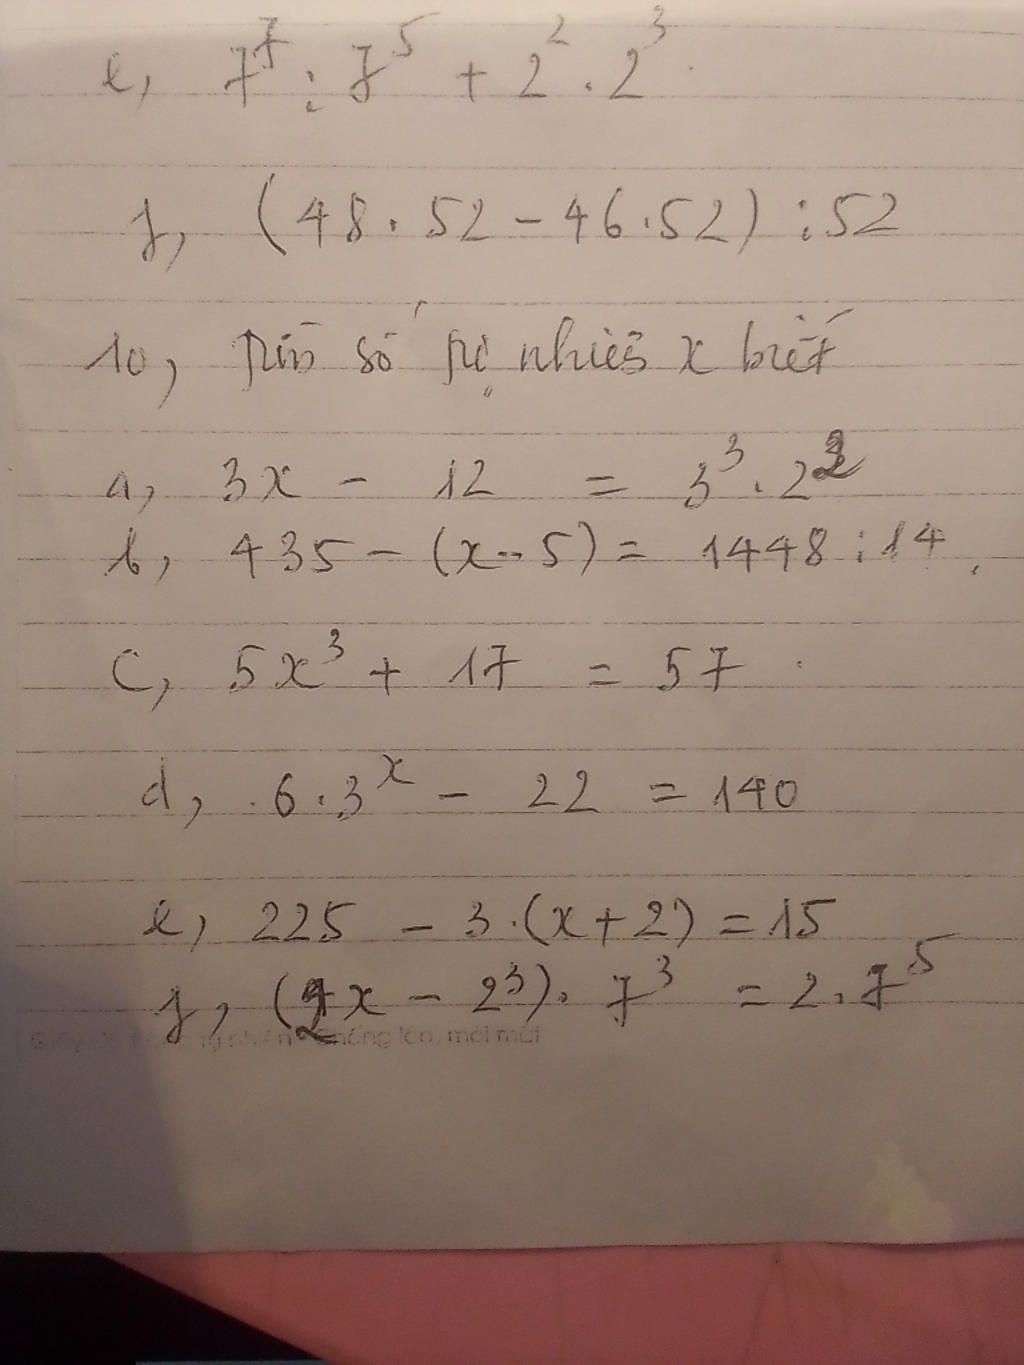 e, 7⁷ : 7⁵ + 2² . 2³ .
f, (48 . 52 - 46 . 52) : 52
10, Tìm số tự nhiên x biết
a, 3x - 12 = 3³ . 2³
b, 435 - (x - 5) = 1448 : 14 .
c, 5x³ + 17 = 57 .
d, . 6 . 3ˣ - 22 = 140
e, 225 - 3 . (x + 2) = 15
f, (2x - 2³) . 7³ = 2 . 7⁵